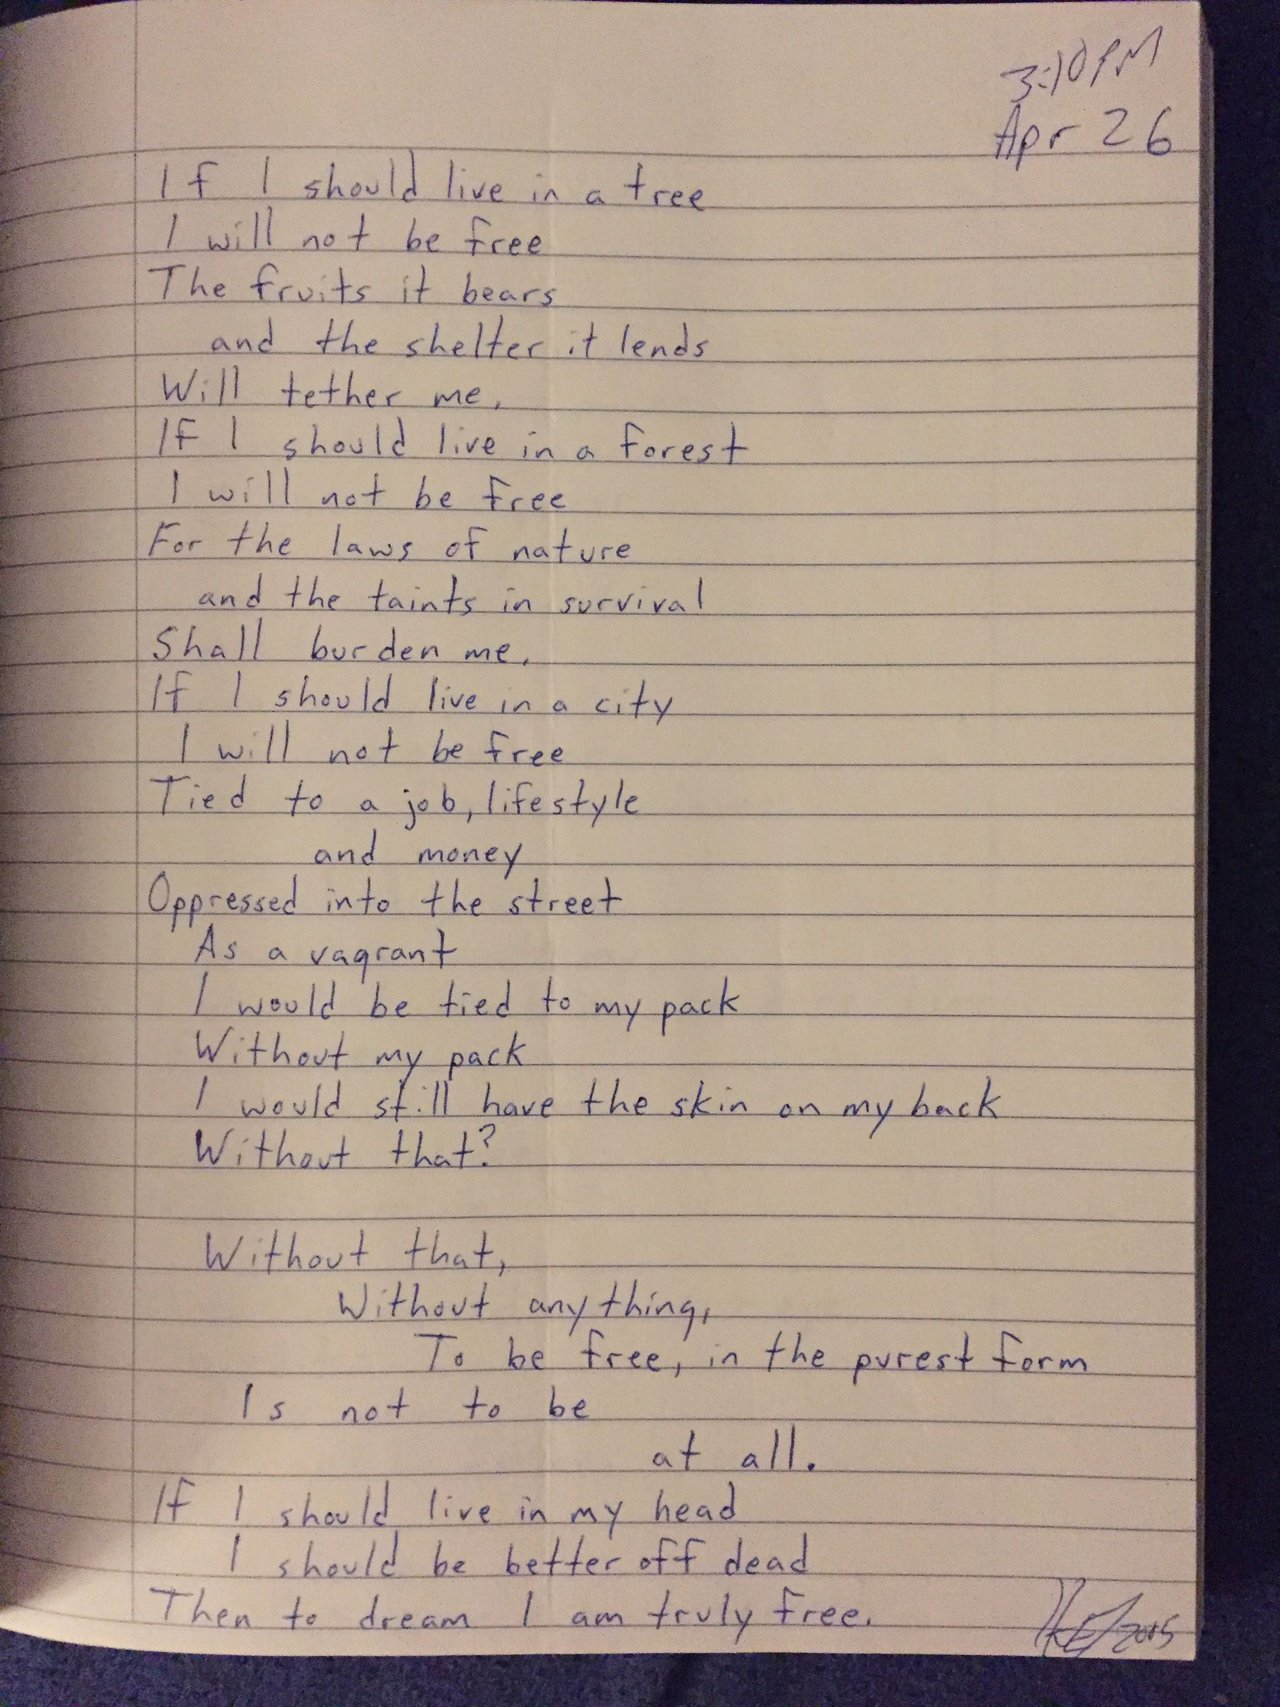 3:10 PM
Apr 26
If I should live in a tree
I will not be free
The fruits it bears
and the shelter it lends
Will tether me.
If I should live in a forest
I will not be free
For the laws of nature
and the taints in survival
Shall burden me.
If I should live in a city
I will not be free
Tied to a job, lifestyle
and money
Oppressed into the street
As a vagrant
I would be tied to my pack
Without my pack
I would still have the skin on my back
Without that?
Without that,
Without anything,
To be free, in the purest form
Is not to be
at all.
If I should live in my head
I should be better off dead
Then to dream I am truly free.
2015